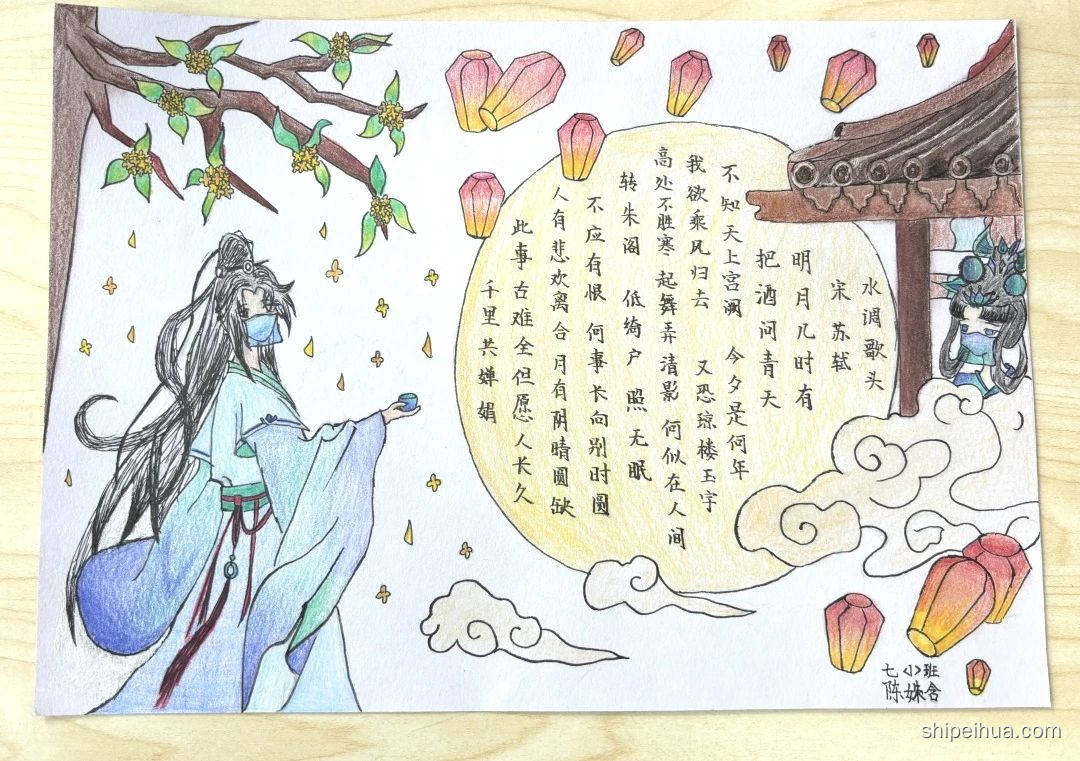 水调歌头
宋 苏轼
明月几时有
把酒问青天
不知天上宫阙 今夕是何年
我欲乘风归去 又恐琼楼玉宇
高处不胜寒 起舞弄清影 何似在人间
转朱阁 低绮户 照无眠
不应有恨 何事长向别时圆
人有悲欢离合 月有阴晴圆缺
此事古难全 但愿人长久
千里共婵娟
七<小>班
陈姝含
shipeihua.com